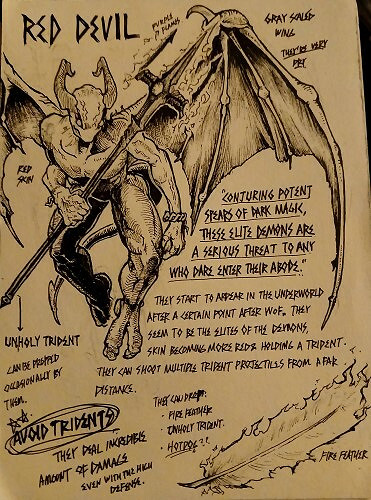 RED DEVIL
PURPLE
FLAMES
GRAY SCALED
WING
THEY'RE VERY
DRY
RED
SKIN
"CONJURING POTENT
SPEARS OF DARK MAGIC,
THESE ELITE DEMONS ARE
A SERIOUS THREAT TO ANY
WHO DARE ENTER THEIR ABODE."
THEY START TO APPEAR IN THE UNDERWORLD
AFTER A CERTAIN POINT AFTER WOF. THEY
SEEM TO BE THE ELITES OF THE DEMONS,
SKIN BECOMING MORE RED & HOLDING A TRIDENT.
THEY CAN SHOOT MULTIPLE TRIDENT PROJECTILES FROM AFAR
DISTANCE.
UNHOLY TRIDENT
CAN BE DROPPED
OCCASIONALLY BY
THEM.
AVOID TRIDENTS
THEY DEAL INCREDIBLE
AMOUNT OF DAMAGE
EVEN WITH THE HIGH
DEFENSE.
THEY CAN DROP:
· FIRE FEATHER
· UNHOLY TRIDENT.
· HOTDOG?!
FIRE FEATHER